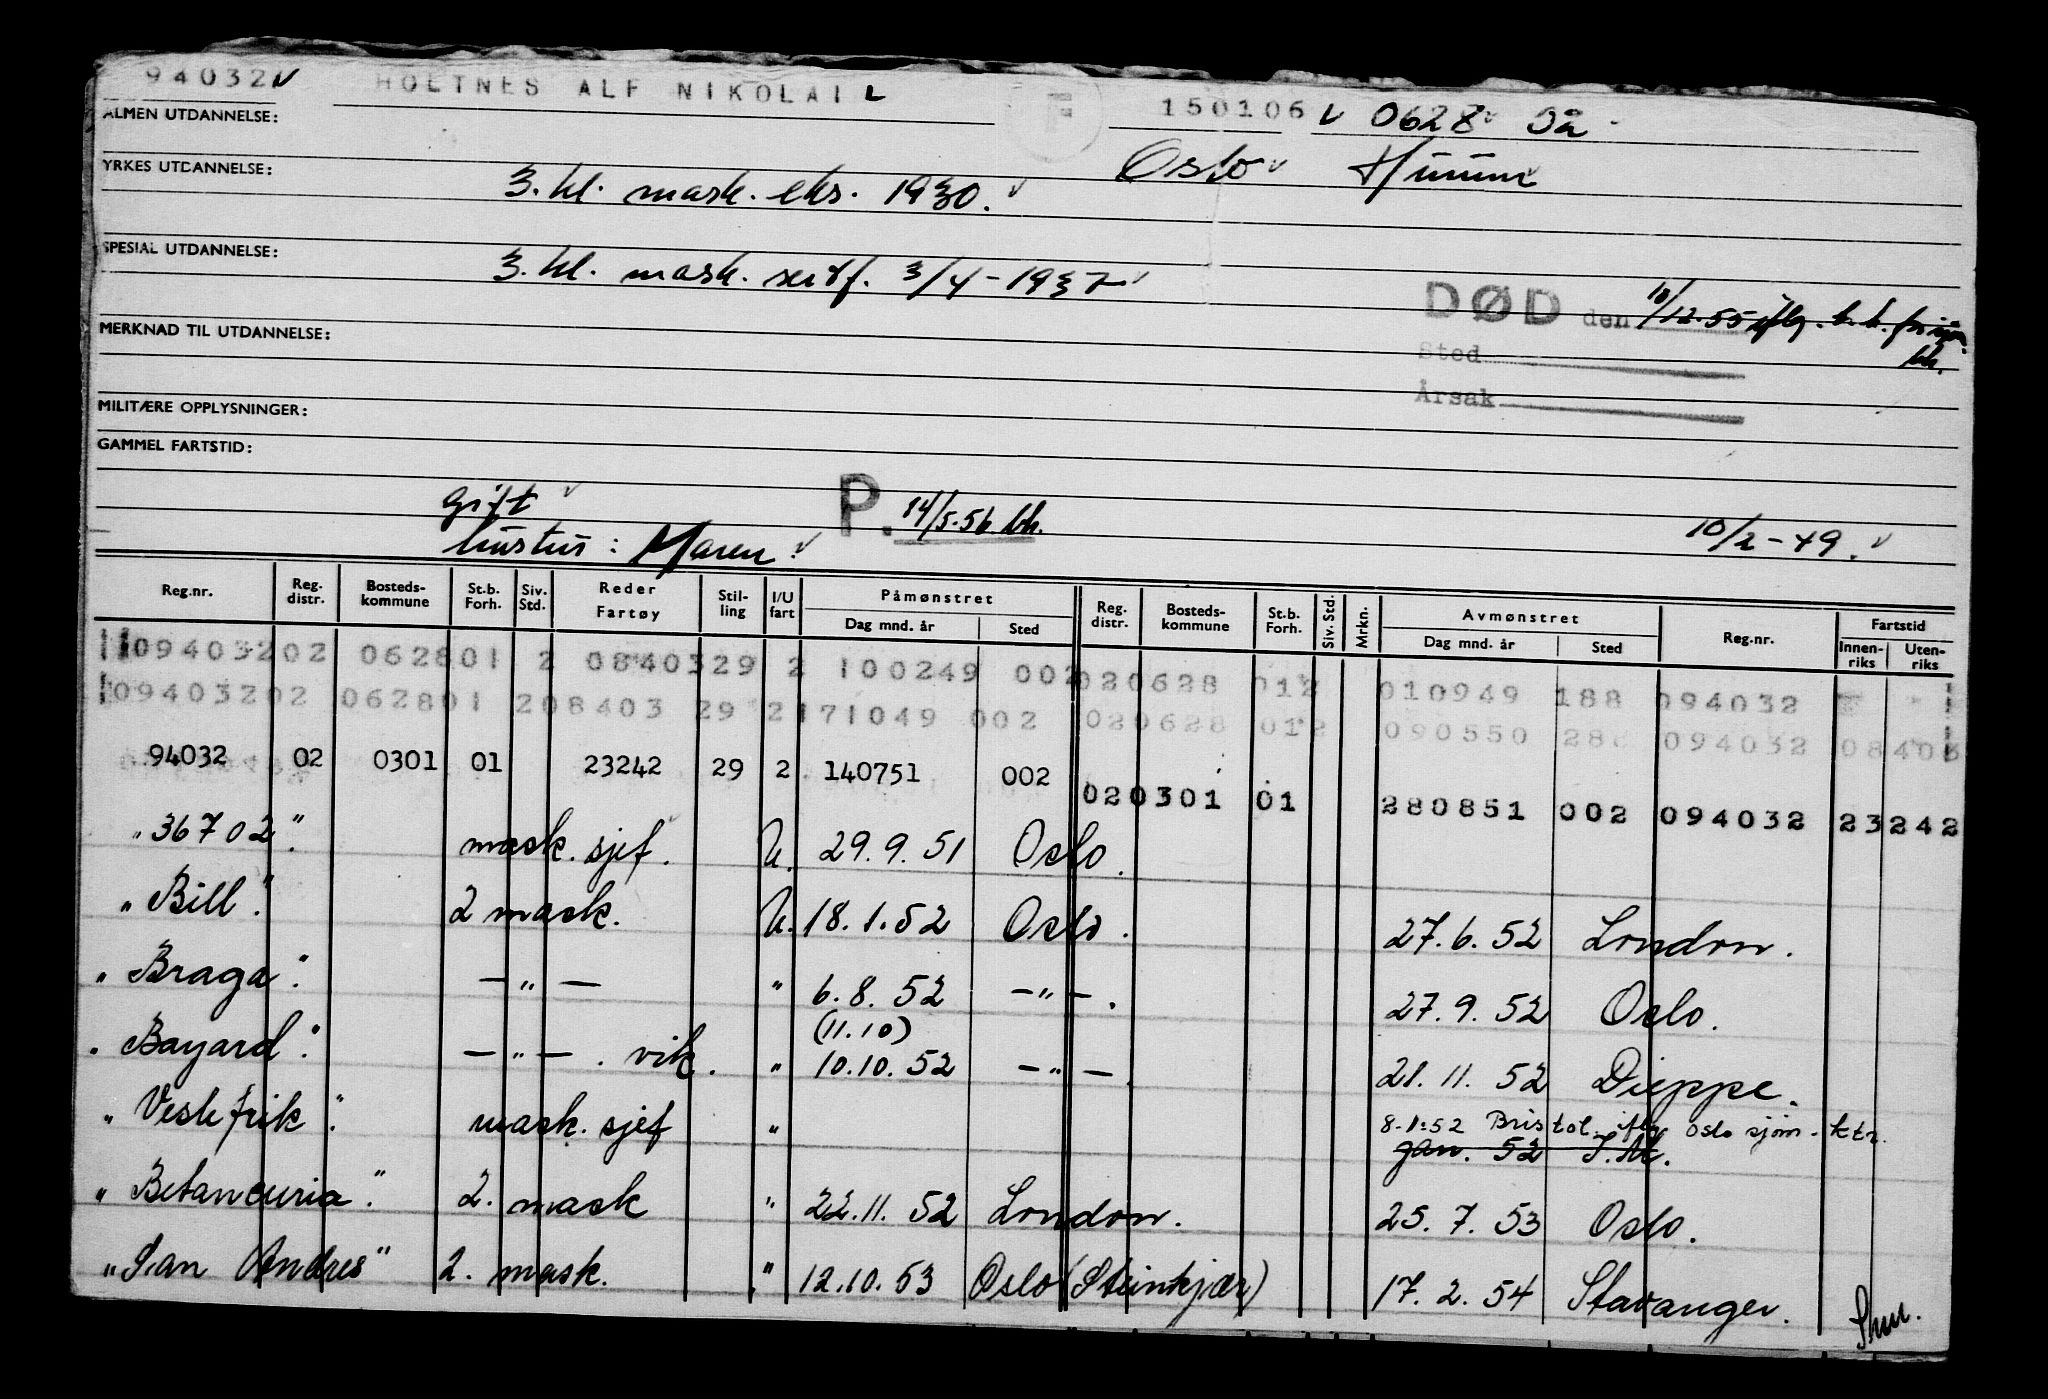 94032 HOLTNES ALF NIKOLAI 150106 0628
ALMEN UTDANNELSE:
Oslo
YRKES UTDANNELSE: 3. kl. mask. eks. 1930.
SPESIAL UTDANNELSE: 3. kl. mask. sertf. 3/4-1937
DØD den 10/12.55 iflg.
MERKNAD TIL UTDANNELSE:
Sted
Årsak
MILITÆRE OPPLYSNINGER:
GAMMEL FARTSTID:
gift P. 14/5.56 bh. 10/2-49.
hustru: Maren.
Reg.nr. Reg. distr. Bosteds-kommune St.b. Forh. Siv. Std. Reder Fartøy Stil-ling I/U fart Påmønstret Reg. distr. Bosteds-kommune St.b. Forh. Siv. Std. Mrkn. Avmønstret Reg.nr. Fartstid
Dag mnd. år Sted Dag mnd. år Sted Innen-riks Uten-riks
09403202 062801 2 0840329 2 100249 002 020628 012 010949 188 094032
09403202 062801 208403 29 2171049 002 020628 012 090550 094032 08403
94032 02 0301 01 23242 29 2 140751 002 020301 01 280851 002 094032 23242
"36702". mask. sjef. U. 29.9.51 Oslo.
"Bill". 2 mask. U. 18.1.52 Oslo. 27.6.52 London.
"Braga". —"— " 6.8.52 —"—. 27.9.52 Oslo.
(11.10)
"Bayard". —"—. vik. " 10.10.52 —"—. 21.11.52 Dieppe.
8.1.52 Bristol iflg Oslo sjøm.ktr.
"Veslefrik". mask. sjef " jan. 52
"Betancuria". 2. mask " 22.11.52 London. 25.7.53 Oslo.
"San Andres" 2. mask. " 12.10.53 Oslo (Steinkjær) 17.2.54 Stavanger.